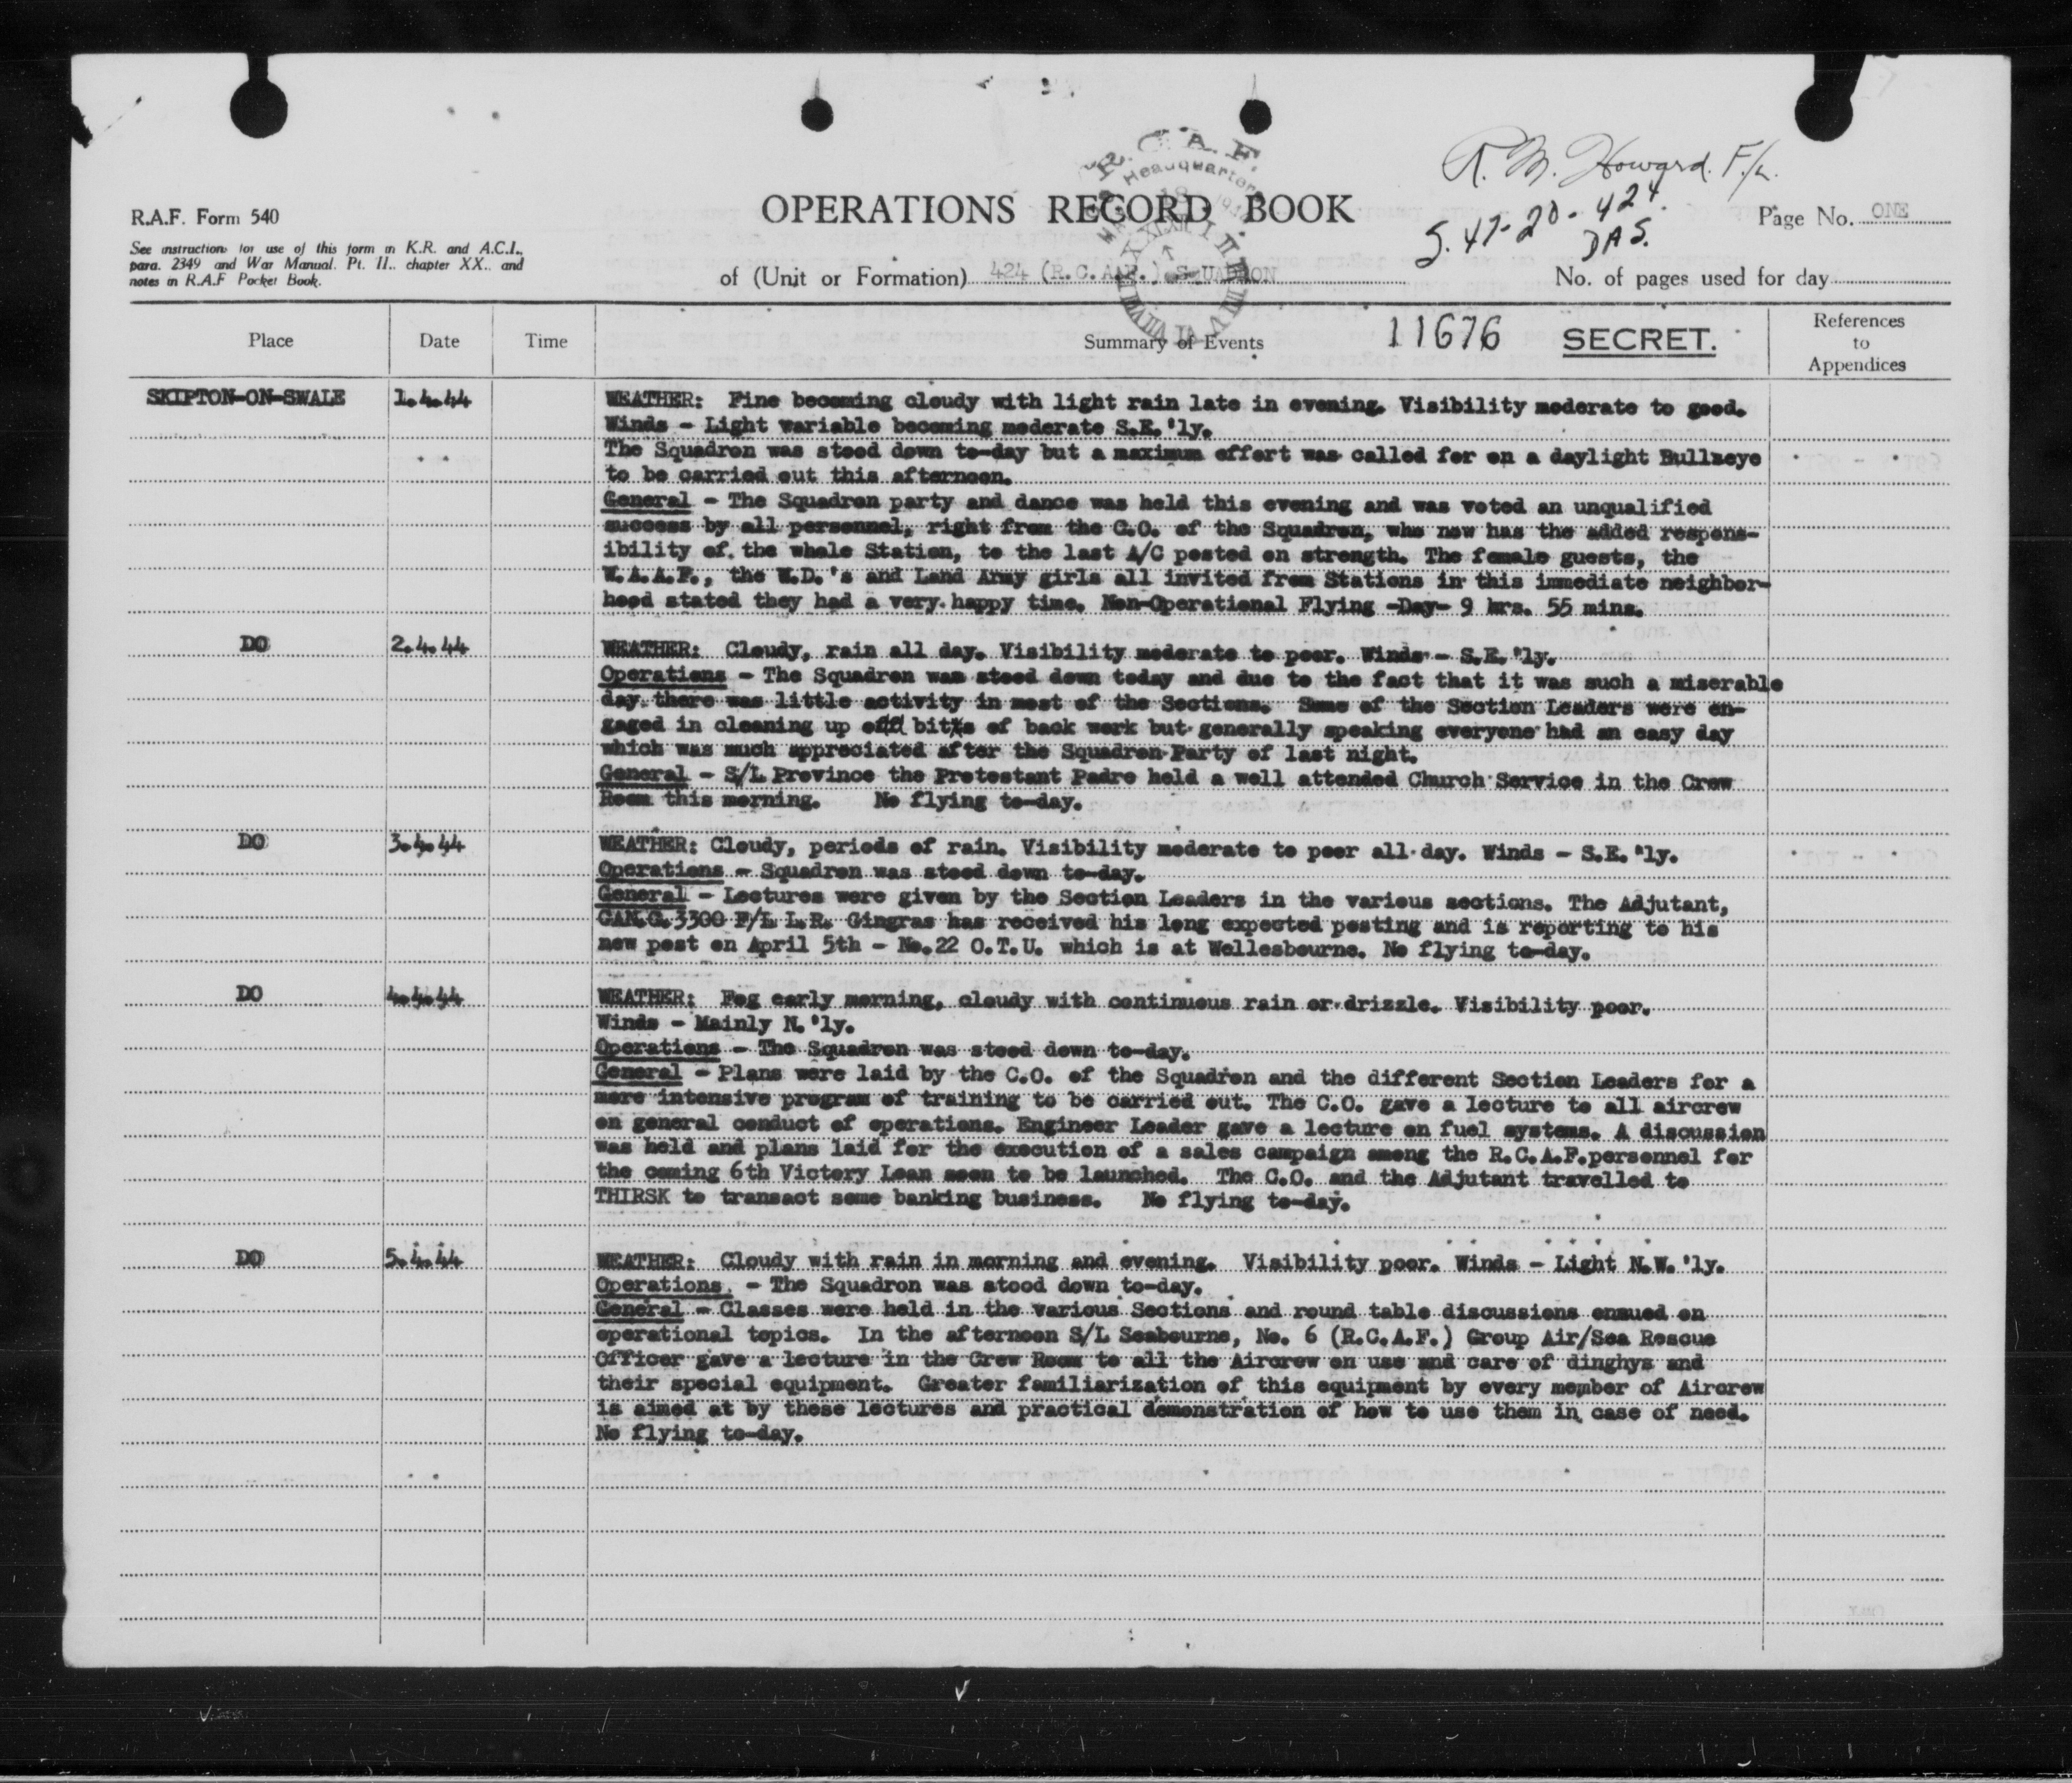 R. M. Howard. F/L.
S. 47-20-424.
DAS.
R.C.A.F.
Headquarters
R.A.F. Form 540
See instructions for use of this form in K.R. and A.C.I.,
para. 2349 and War Manual. Pt. II., chapter XX., and
notes in R.A.F Pocket Book.
OPERATIONS RECORD BOOK
Page No. ONE
of (Unit or Formation) 424 (R.C.A.F.) SQUADRON
No. of pages used for day
Place Date Time Summary of Events 11676 SECRET. References to Appendices
SKIPTON-ON-SWALE 1.4.44 WEATHER: Fine becoming cloudy with light rain late in evening. Visibility moderate to good.
Winds - Light variable becoming moderate S.E.'ly.
The Squadron was stood down to-day but a maximum effort was called for on a daylight Bullseye
to be carried out this afternoon.
General - The Squadron party and dance was held this evening and was voted an unqualified
success by all personnel, right from the C.O. of the Squadron, who now has the added respons-
ibility of the whole Station, to the last A/C posted on strength. The female guests, the
W.A.A.F., the W.D.'s and Land Army girls all invited from Stations in this immediate neighbor-
hood stated they had a very happy time. Non-Operational Flying -Day- 9 hrs. 55 mins.
DO 2.4.44 WEATHER: Cloudy, rain all day. Visibility moderate to poor. Winds - S.E.'ly.
Operations - The Squadron was stood down today and due to the fact that it was such a miserable
day there was little activity in most of the Sections. Some of the Section Leaders were en-
gaged in cleaning up odd bits of back work but generally speaking everyone had an easy day
which was much appreciated after the Squadron Party of last night.
General - S/L Province the Protestant Padre held a well attended Church Service in the Crew
Room this morning. No flying to-day.
DO 3.4.44 WEATHER: Cloudy, periods of rain. Visibility moderate to poor all day. Winds - S.E.'ly.
Operations - Squadron was stood down to-day.
General - Lectures were given by the Section Leaders in the various sections. The Adjutant,
CAN.C.3300 F/L L.R. Gingras has received his long expected posting and is reporting to his
new post on April 5th - No.22 O.T.U. which is at Wellesbourne. No flying to-day.
DO 4.4.44 WEATHER: Fog early morning, cloudy with continuous rain or drizzle. Visibility poor.
Winds - Mainly N.'ly.
Operations - The Squadron was stood down to-day.
General - Plans were laid by the C.O. of the Squadron and the different Section Leaders for a
more intensive program of training to be carried out. The C.O. gave a lecture to all aircrew
on general conduct of operations. Engineer Leader gave a lecture on fuel systems. A discussion
was held and plans laid for the execution of a sales campaign among the R.C.A.F.personnel for
the coming 6th Victory Loan soon to be launched. The C.O. and the Adjutant travelled to
THIRSK to transact some banking business. No flying to-day.
DO 5.4.44 WEATHER: Cloudy with rain in morning and evening. Visibility poor. Winds - Light N.W.'ly.
Operations. - The Squadron was stood down to-day.
General - Classes were held in the various Sections and round table discussions ensued on
operational topics. In the afternoon S/L Seabourne, No. 6 (R.C.A.F.) Group Air/Sea Rescue
Officer gave a lecture in the Crew Room to all the Aircrew on use and care of dinghys and
their special equipment. Greater familiarization of this equipment by every member of Aircrew
is aimed at by these lectures and practical demonstration of how to use them in case of need.
No flying to-day.